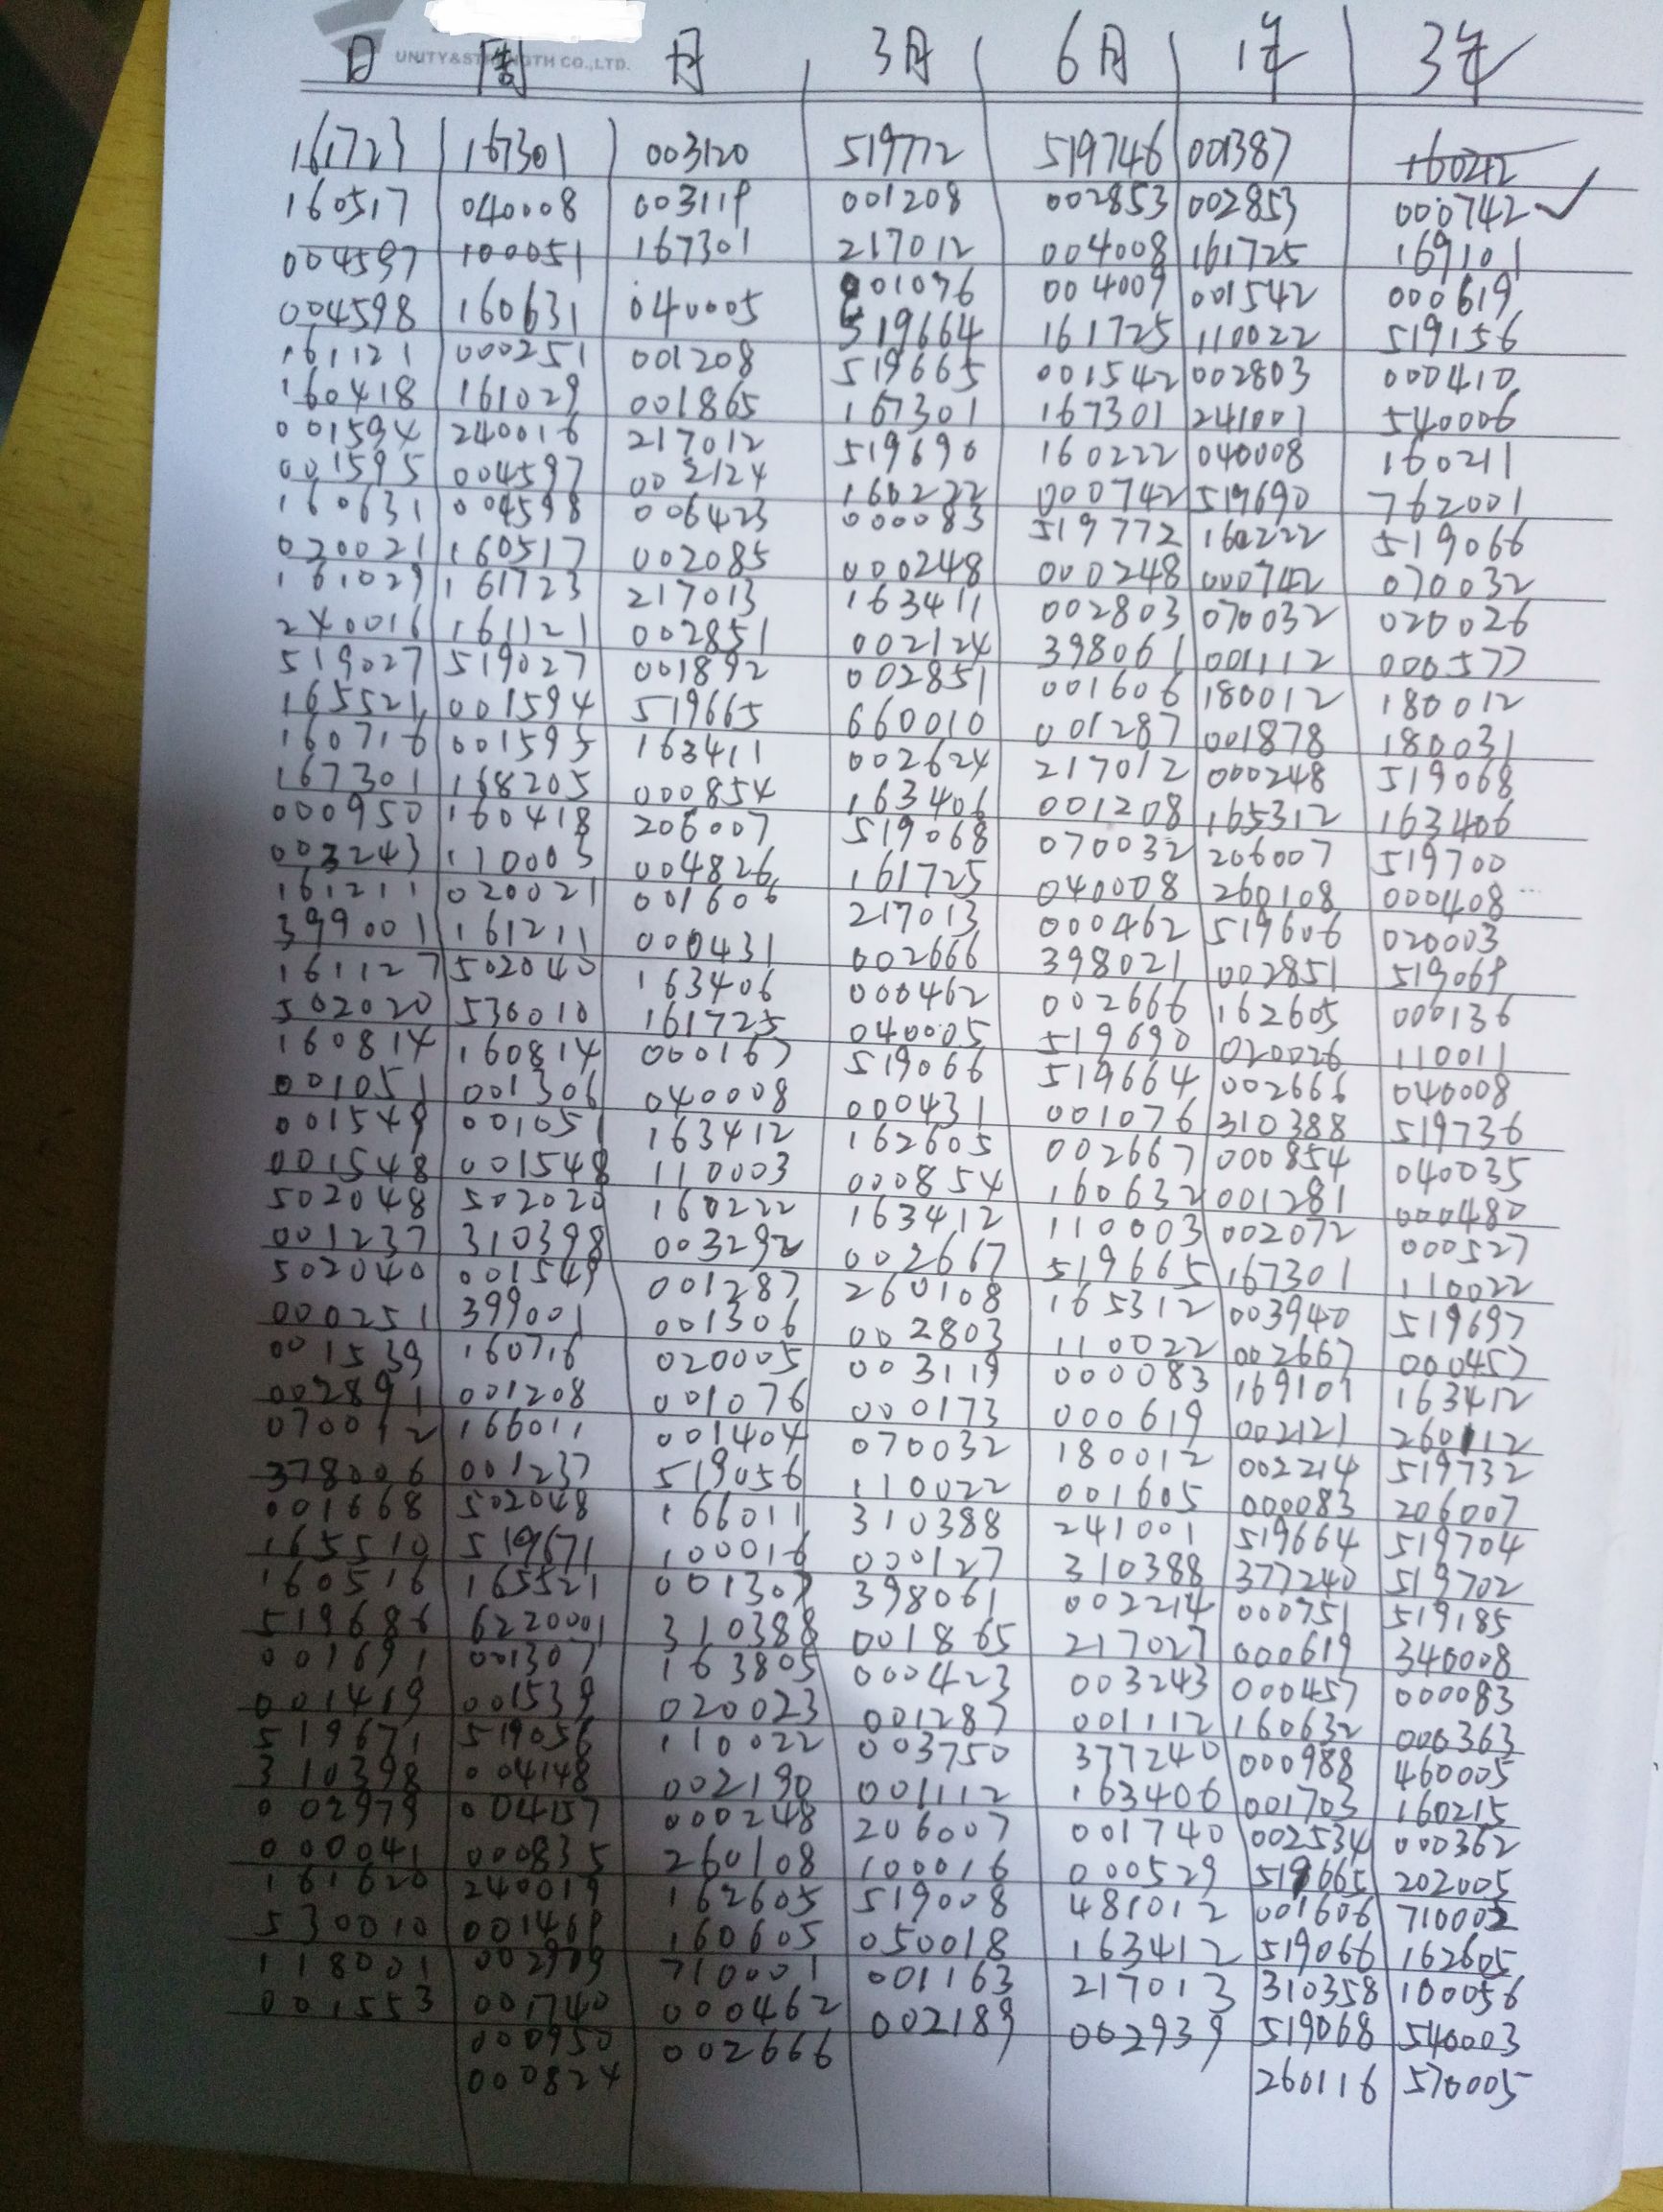 UNITY&STRENGTH CO.,LTD.
日 周 月 3月 6月 1年 3年
161723 167301 003120 519772 519746 001387 160212
160517 040008 003119 001208 002853 002853 000742 ✓
004597 100051 167301 217012 004008 161725 169101
004598 160631 040005 001076 004009 001542 000619
161121 000251 001208 519664 161725 110022 519156
160418 161029 001865 519665 001542 002803 000410
001594 240016 217012 167301 167301 241001 540006
001595 004597 002124 519690 160222 040008 160211
160631 004598 006423 160222 000742 519690 762001
020021 160517 002085 000083 519772 160222 519066
161029 161723 217013 000248 000248 000742 070032
240016 161121 002851 163411 002803 070032 020026
519027 519027 001892 002124 398061 001112 000577
165521 001594 519665 002851 001606 180012 180012
160716 001595 163411 660010 001287 001878 180031
167301 168205 000854 002624 217012 000248 519068
000950 160418 206007 163406 001208 165312 163406
003243 110003 004826 519068 070032 206007 519700
161211 020021 001606 161725 040008 260108 000408
399001 161211 000431 217013 000462 519606 020003
161127 502040 163406 002666 398021 002851 519069
502020 530010 161725 000462 002666 162605 000136
160814 160814 000167 040005 519690 020026 110011
001051 001306 040008 519066 519664 002666 040008
001549 001051 163412 000431 001076 310388 519736
001548 001548 110003 162605 002667 000854 040035
502048 502020 160222 000854 160632 001281 000480
001237 310398 003292 163412 110003 002072 000527
502040 001549 001287 002667 519665 167301 110022
000251 399001 001306 260108 165312 003940 519697
001539 160716 020005 002803 110022 002667 000457
002891 001208 001076 003119 000083 169101 163412
070012 166011 001404 000173 000619 002121 260112
378006 001237 519056 070032 180012 002214 519732
001668 502048 166011 110022 001605 000083 206007
165510 519671 100016 310388 241001 519664 519704
160516 165521 001307 000127 310388 377240 519702
519686 6220001 310388 398061 002214 000751 519185
001691 001307 163805 001865 217027 000619 340008
001419 001539 020023 000423 003243 000457 000083
519671 519056 110022 001287 001112 160632 000363
310398 004148 002190 003750 377240 000988 460005
002979 004157 000248 001112 163406 001703 160215
000041 000835 260108 206007 001740 002534 000362
161620 240019 162605 100016 000529 519665 202005
530010 001469 160605 519008 481012 001606 710002
118001 002909 710001 050018 163412 519066 162605
001553 001740 000462 001163 217013 310358 100056
000950 002666 002189 002939 519068 540003
000824 260116 570005